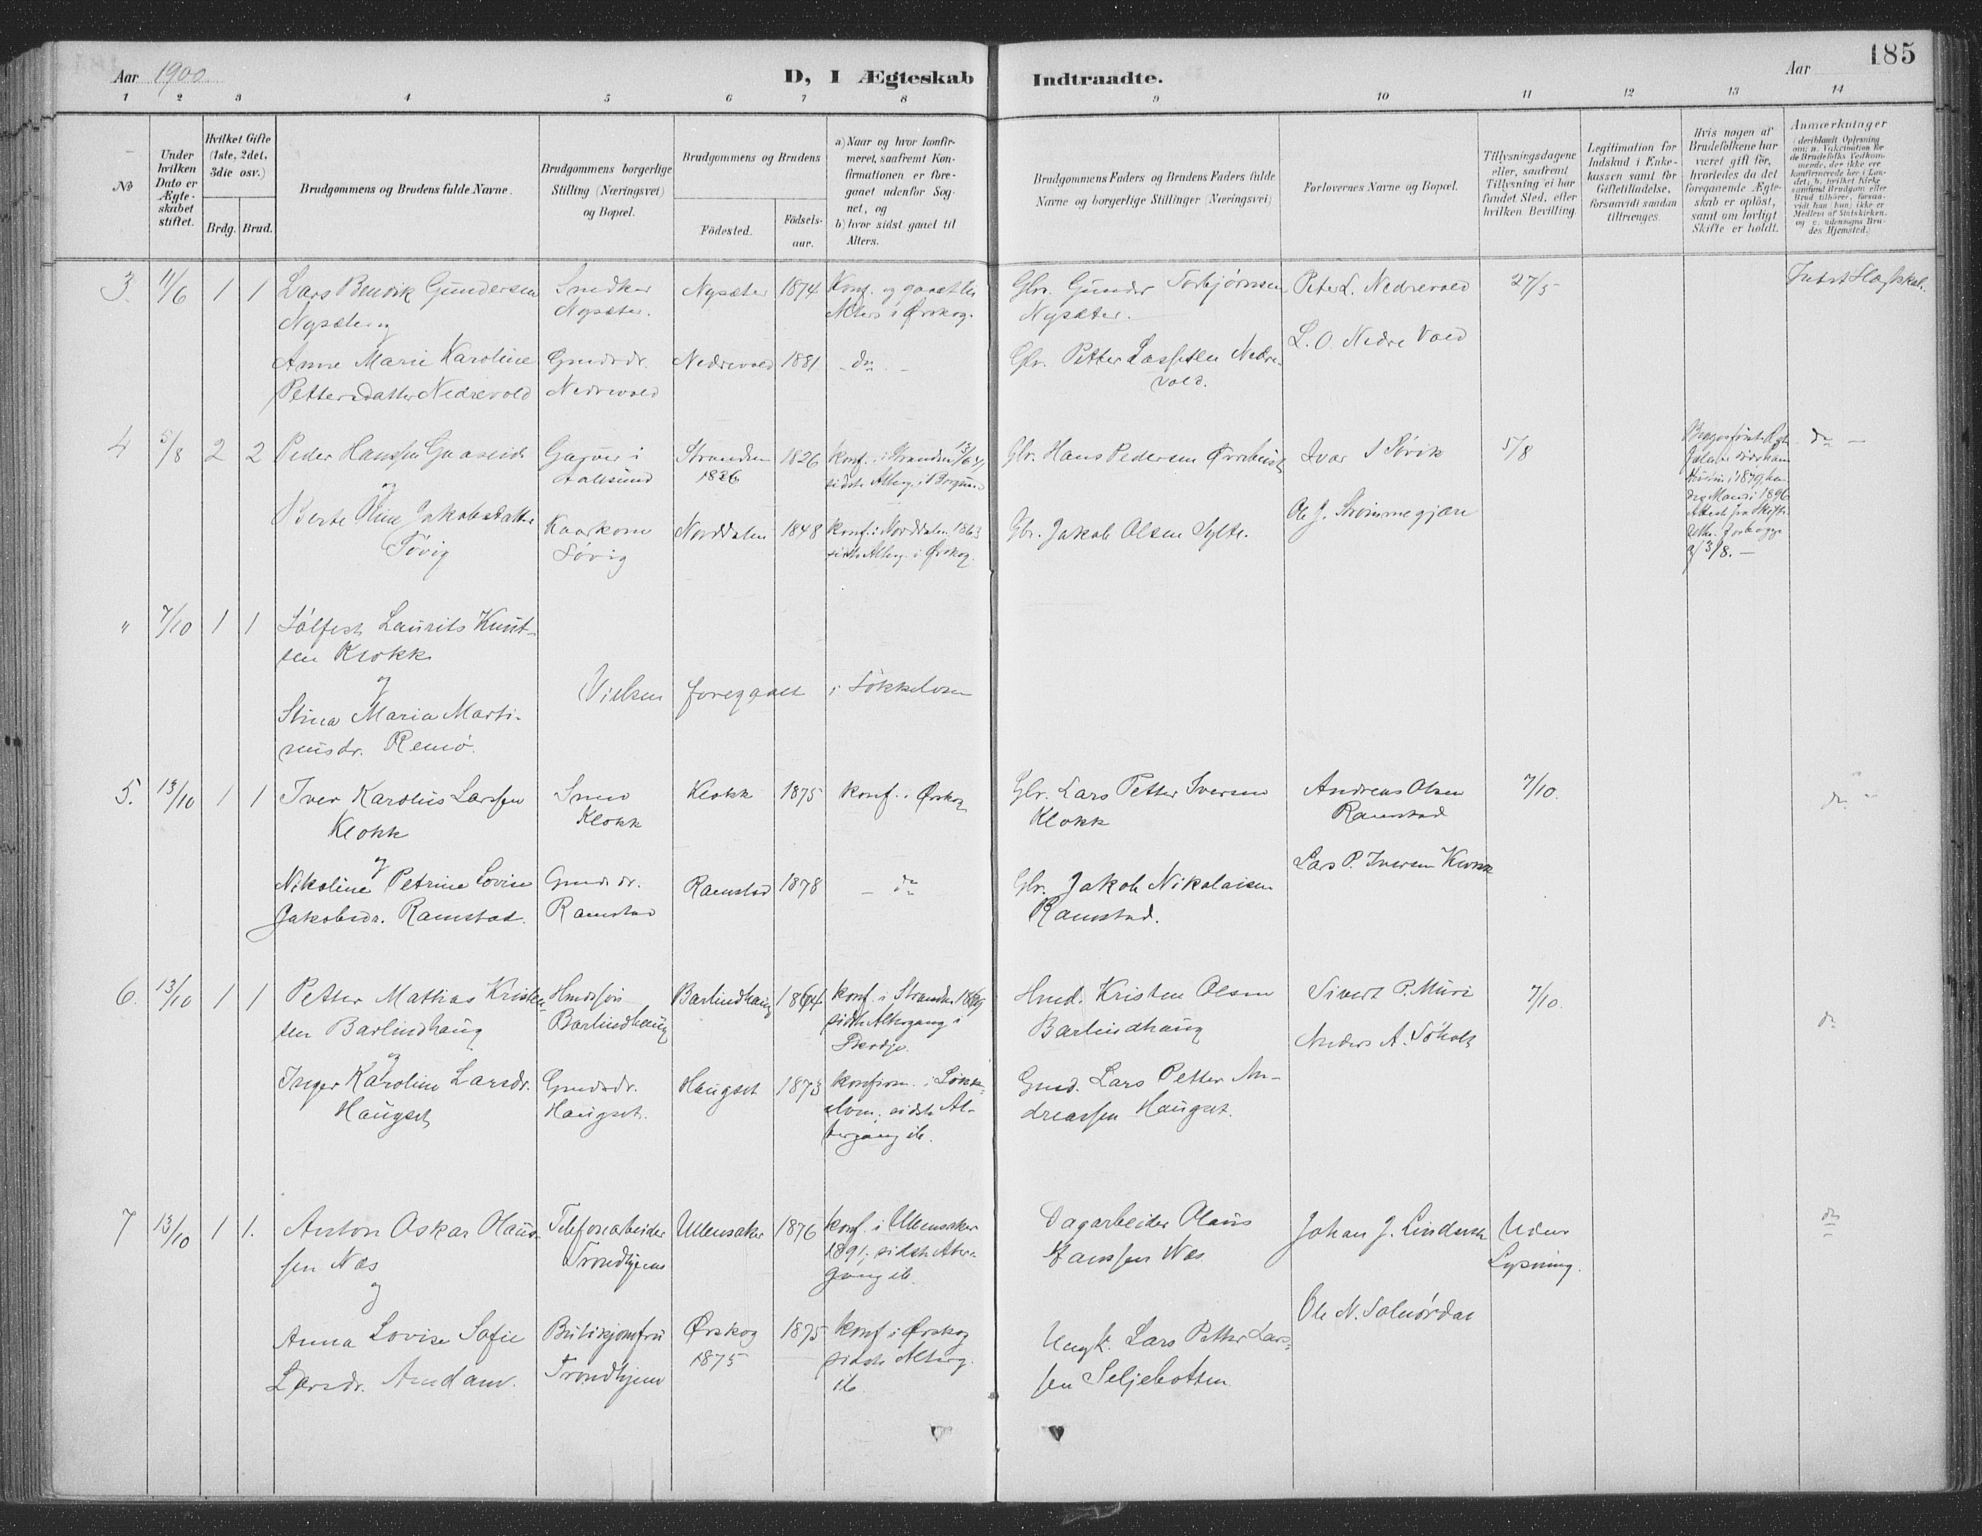 185
Aar 1900. D, I Ægteskab Indtraadte. Aar
1 2 3 4 5 6 7 8 9 10 11 12 13 14
No
Under hvilken Dato er Ægteskabet stiftet.
Hvilket Gifte (1ste, 2det, 3die osv.)
Brdg. Brud.
Brudgommens og Brudens fulde Navne.
Brudgommens borgerlige Stilling (Næringsvei) og Bopæl.
Brudgommens og Brudens
Födested.
Födsels-aar.
a) Naar og hvor konfirmeret, saafremt Konfirmationen er foregaaet udenfor Sognet, og
b) hvor sidst gaaet til Alters.
Brudgommens Faders og Brudens Faders fulde Navne og borgerlige Stillinger (Næringsvei)
Forlovernes Navne og Bopæl.
Tillysningsdagene eller, saafremt Tillysning ei har fundet Sted, efter hvilken Bevilling.
Legitimation for Indskud i Enkekassen samt for Giftetilladelse, forsaavidt saadan tiltrænges.
Hvis nogen af Brudefolkene har været gift för, hvorledes da det foregaaende Ægteskab er oplöst, samt om lovligt Skifte er holdt.
Anmærkninger
3. 11/6 1 1 Lars Bendik Gundersen
Nysæter og
Snedker
Nysæter.
Nysæter 1874
Konf. og gaaet til
Alters i Ørskog.
Gbr. Gunder Torbjørnsen
Nysæter.
Peter L. Nedrevold
27/5
Intet Slægtskab.
Anne Marie Karoline
Pettersdatter Nedrevold
Gmdsdr.
Nedrevold
Nedrevold 1881 - do -
Gbr. Petter Larssen Nedre-
vold.
L. O. Nedre Vold
4 5/8 2 2 Peder Hanssen Gaaseide
og
Garver i
Aalesund
Stranden
1826
1826
konf. i Stranden
sidste Alterg. i Borgund
Gbr. Hans Pedersen
Ivar I Søvik
5/8
do -
Berte Oline Jakobsdatter
Søvig
Kaarkone
Søvig
Norddalen 1848
konf. i Norddalen 1863
sidste Alterg. i Ørskog.
Gbr. Jakob Olsen Sylte.
Ole J. Strømmegjære
" 7/10 1 1 Sølfest Laurits Knut-
sen Klokk
og
Stina Maria Marti-
nusdr. Remø.
Vielsen foregaaet i Søkkelven
5. 13/10 1 1 Iver Karolius Larssen
Klokk
og
Smed
Klokk
Klokk 1875 konf. i Ørskog
Gbr. Lars Petter Iversen
Klokk
Andreas Olsen
Ramstad
7/10.
do -
Nikoline Petrine Lovise
Jakobsdr. Ramstad.
Gmdsdr.
Ramstad
Ramstad 1878 - do
Gbr. Jakob Nikolaisen
Ramstad.
Lars P. Iversen Klokk
6. 13/10 1 1 Petter Mathias Kristen-
sen Barlindhaug
og
Hmdssøn
Barlindhaug
Barlindhaug 1864
konf. i Stranden
sidste Altergang i
Skodje.
Hmd. Kristen Olsen
Barlindhaug
Sivert P. Muri
7/10
do
Inger Karoline Larsdr.
Haugset
Gmdsdr.
Haugset.
Haugset 1873
konfirm. i Søkk-
elven. sidste Al-
tergang ib.
Gmd. Lars Petter An-
dreassen Haugset.
Anders A. Søholt
7 13/10 1 1. Anton Oskar Olaus-
sen Næs
og
Telefonarbeider
Trondhjem
Ullensaker 1876
konf. i Ullensaker
1891, sidste Alter-
gang ib.
Dagarbeider Olaus
Hanssen Næs
Johan J. Lindseth
Uden
Lysning.
do
Anna Lovise Sofie
Larsdr. Amdam.
Butikjomfru
Trondhjem
Ørskog
1875
1875
konf i Ørskog
sidste Alterg.
ib.
Ungk. Lars Petter Lars-
sen Seljebotten
Ole N. Solnørdal